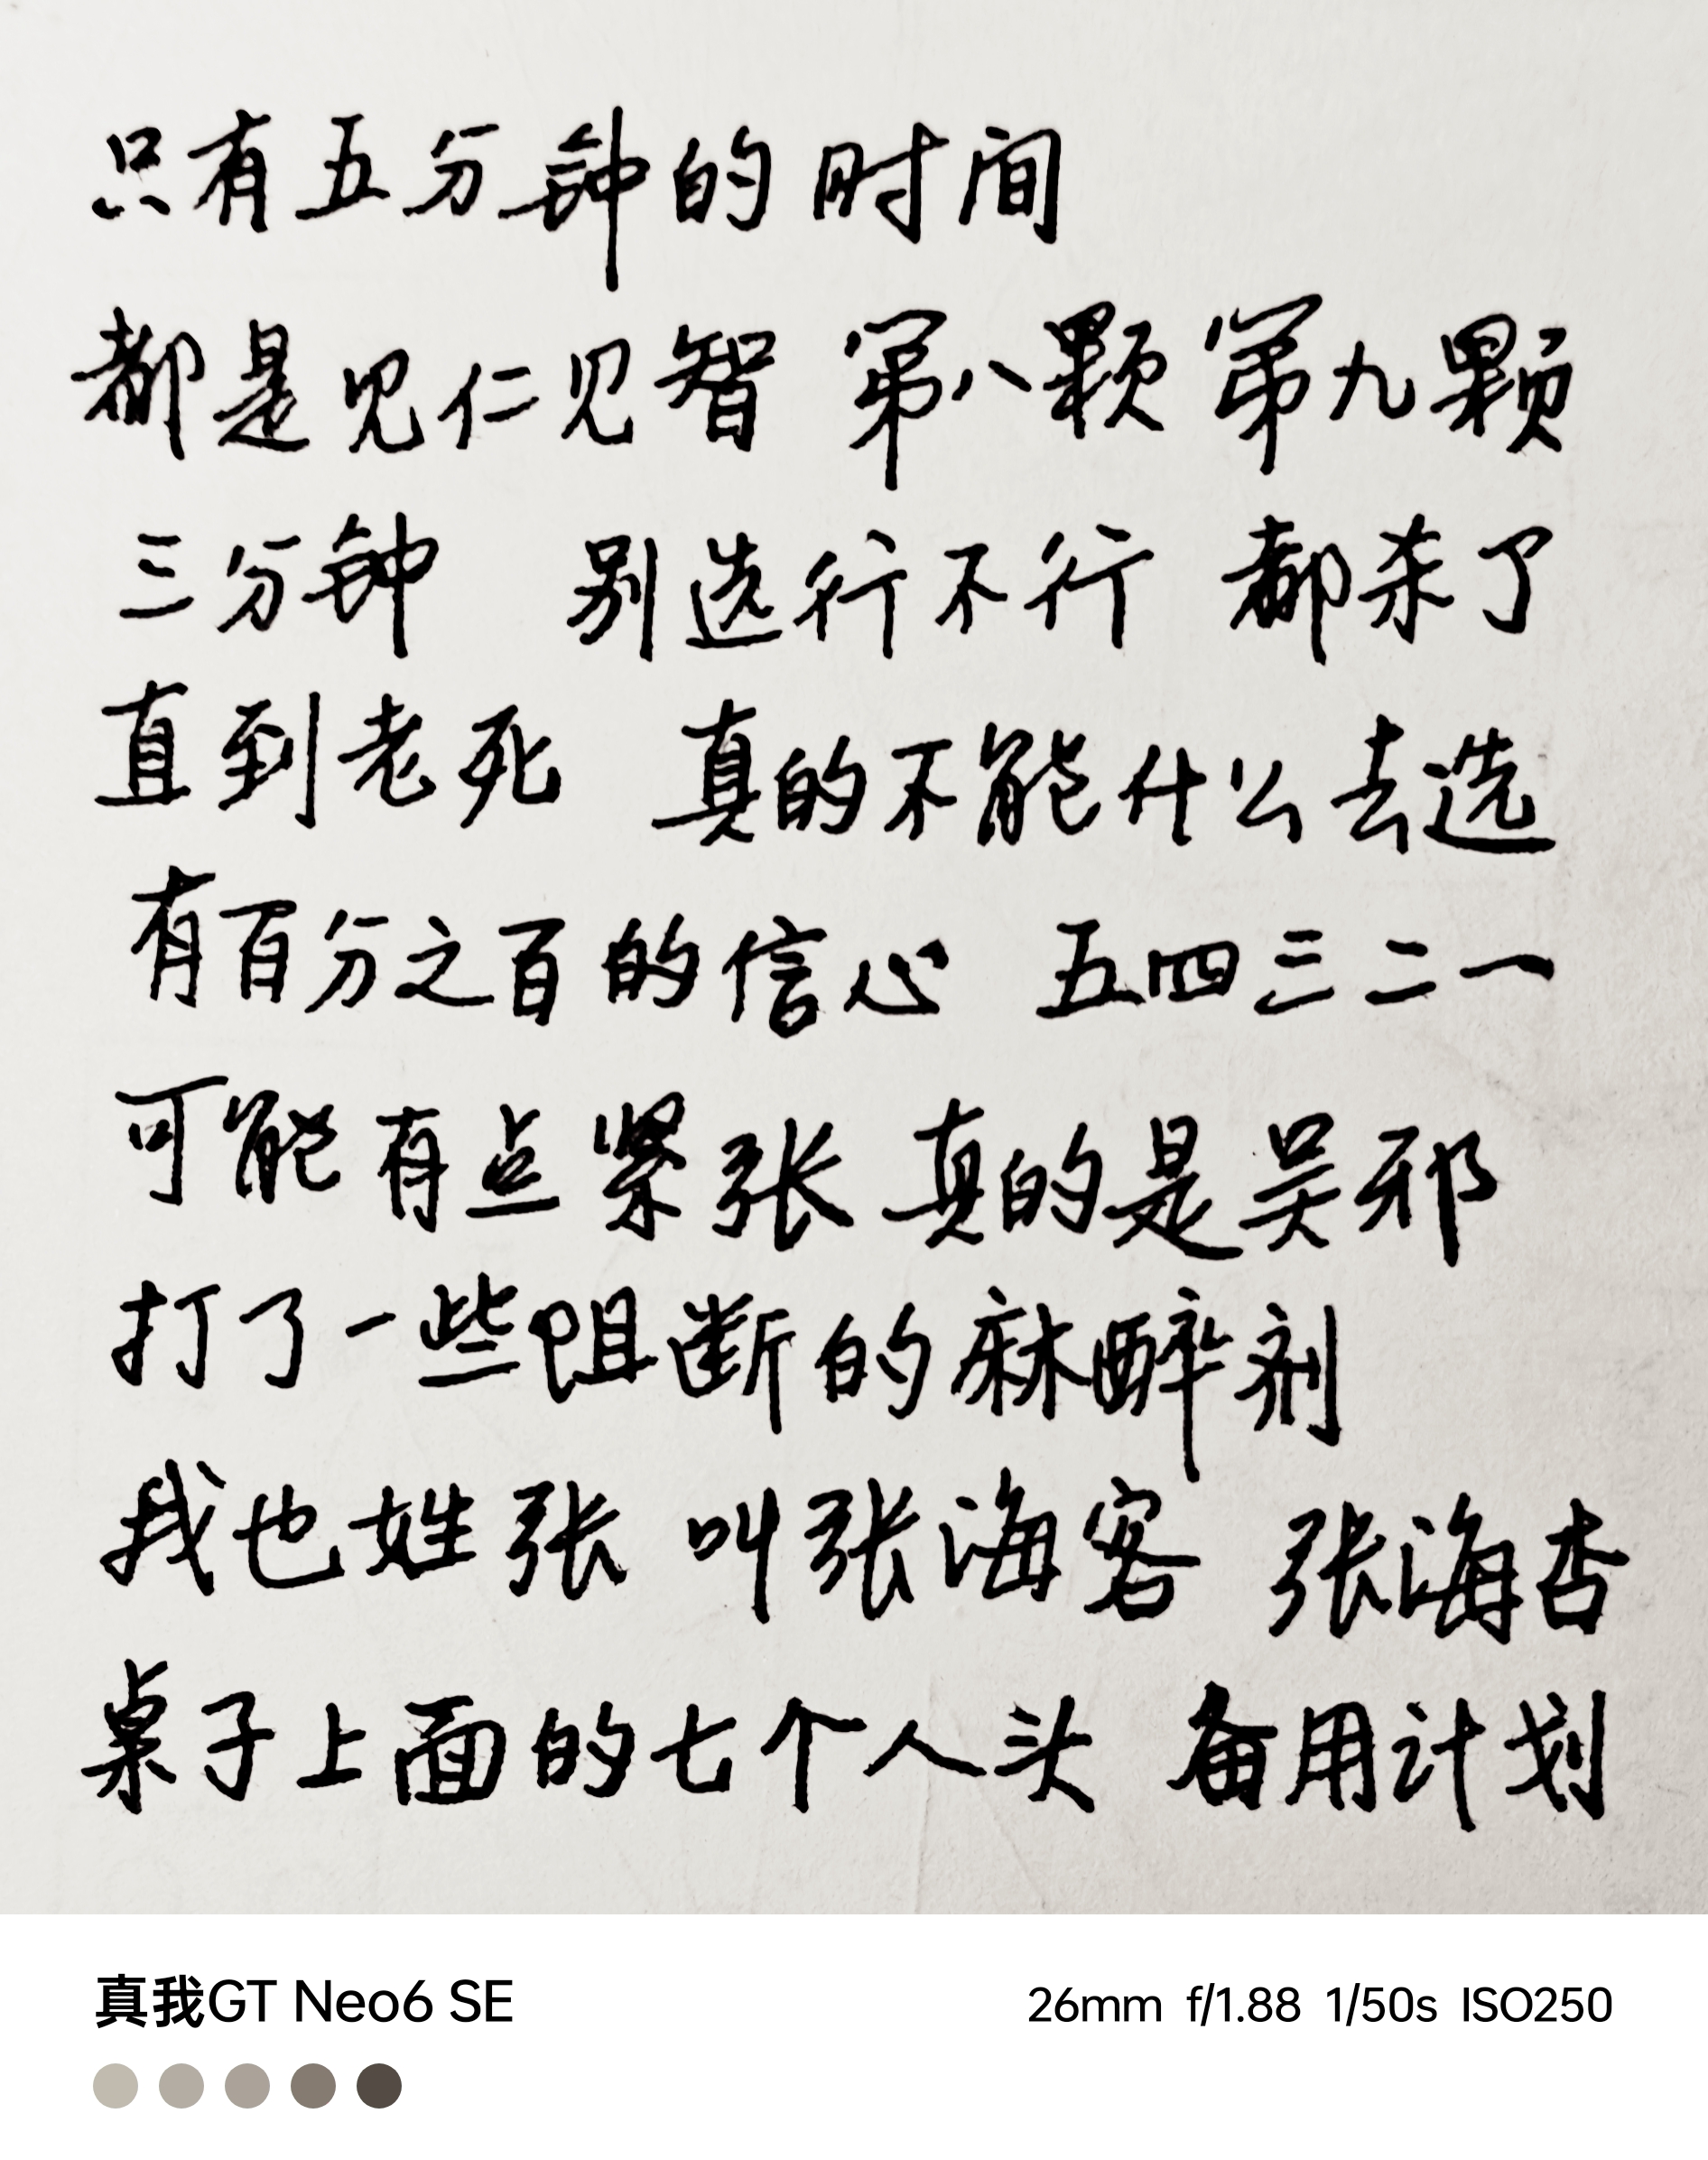 只有五分钟的时间
都是见仁见智 第八颗 第九颗
三分钟 别选行不行 都杀了
直到老死 真的不能什么去选
有百分之百的信心 五四三二一
可能有点紧张 真的是吴邪
打了一些阻断的麻醉剂
我也姓张 叫张海客 张海杏
桌子上面的七个人头 备用计划
真我GT Neo6 SE
26mm f/1.88 1/50s ISO250